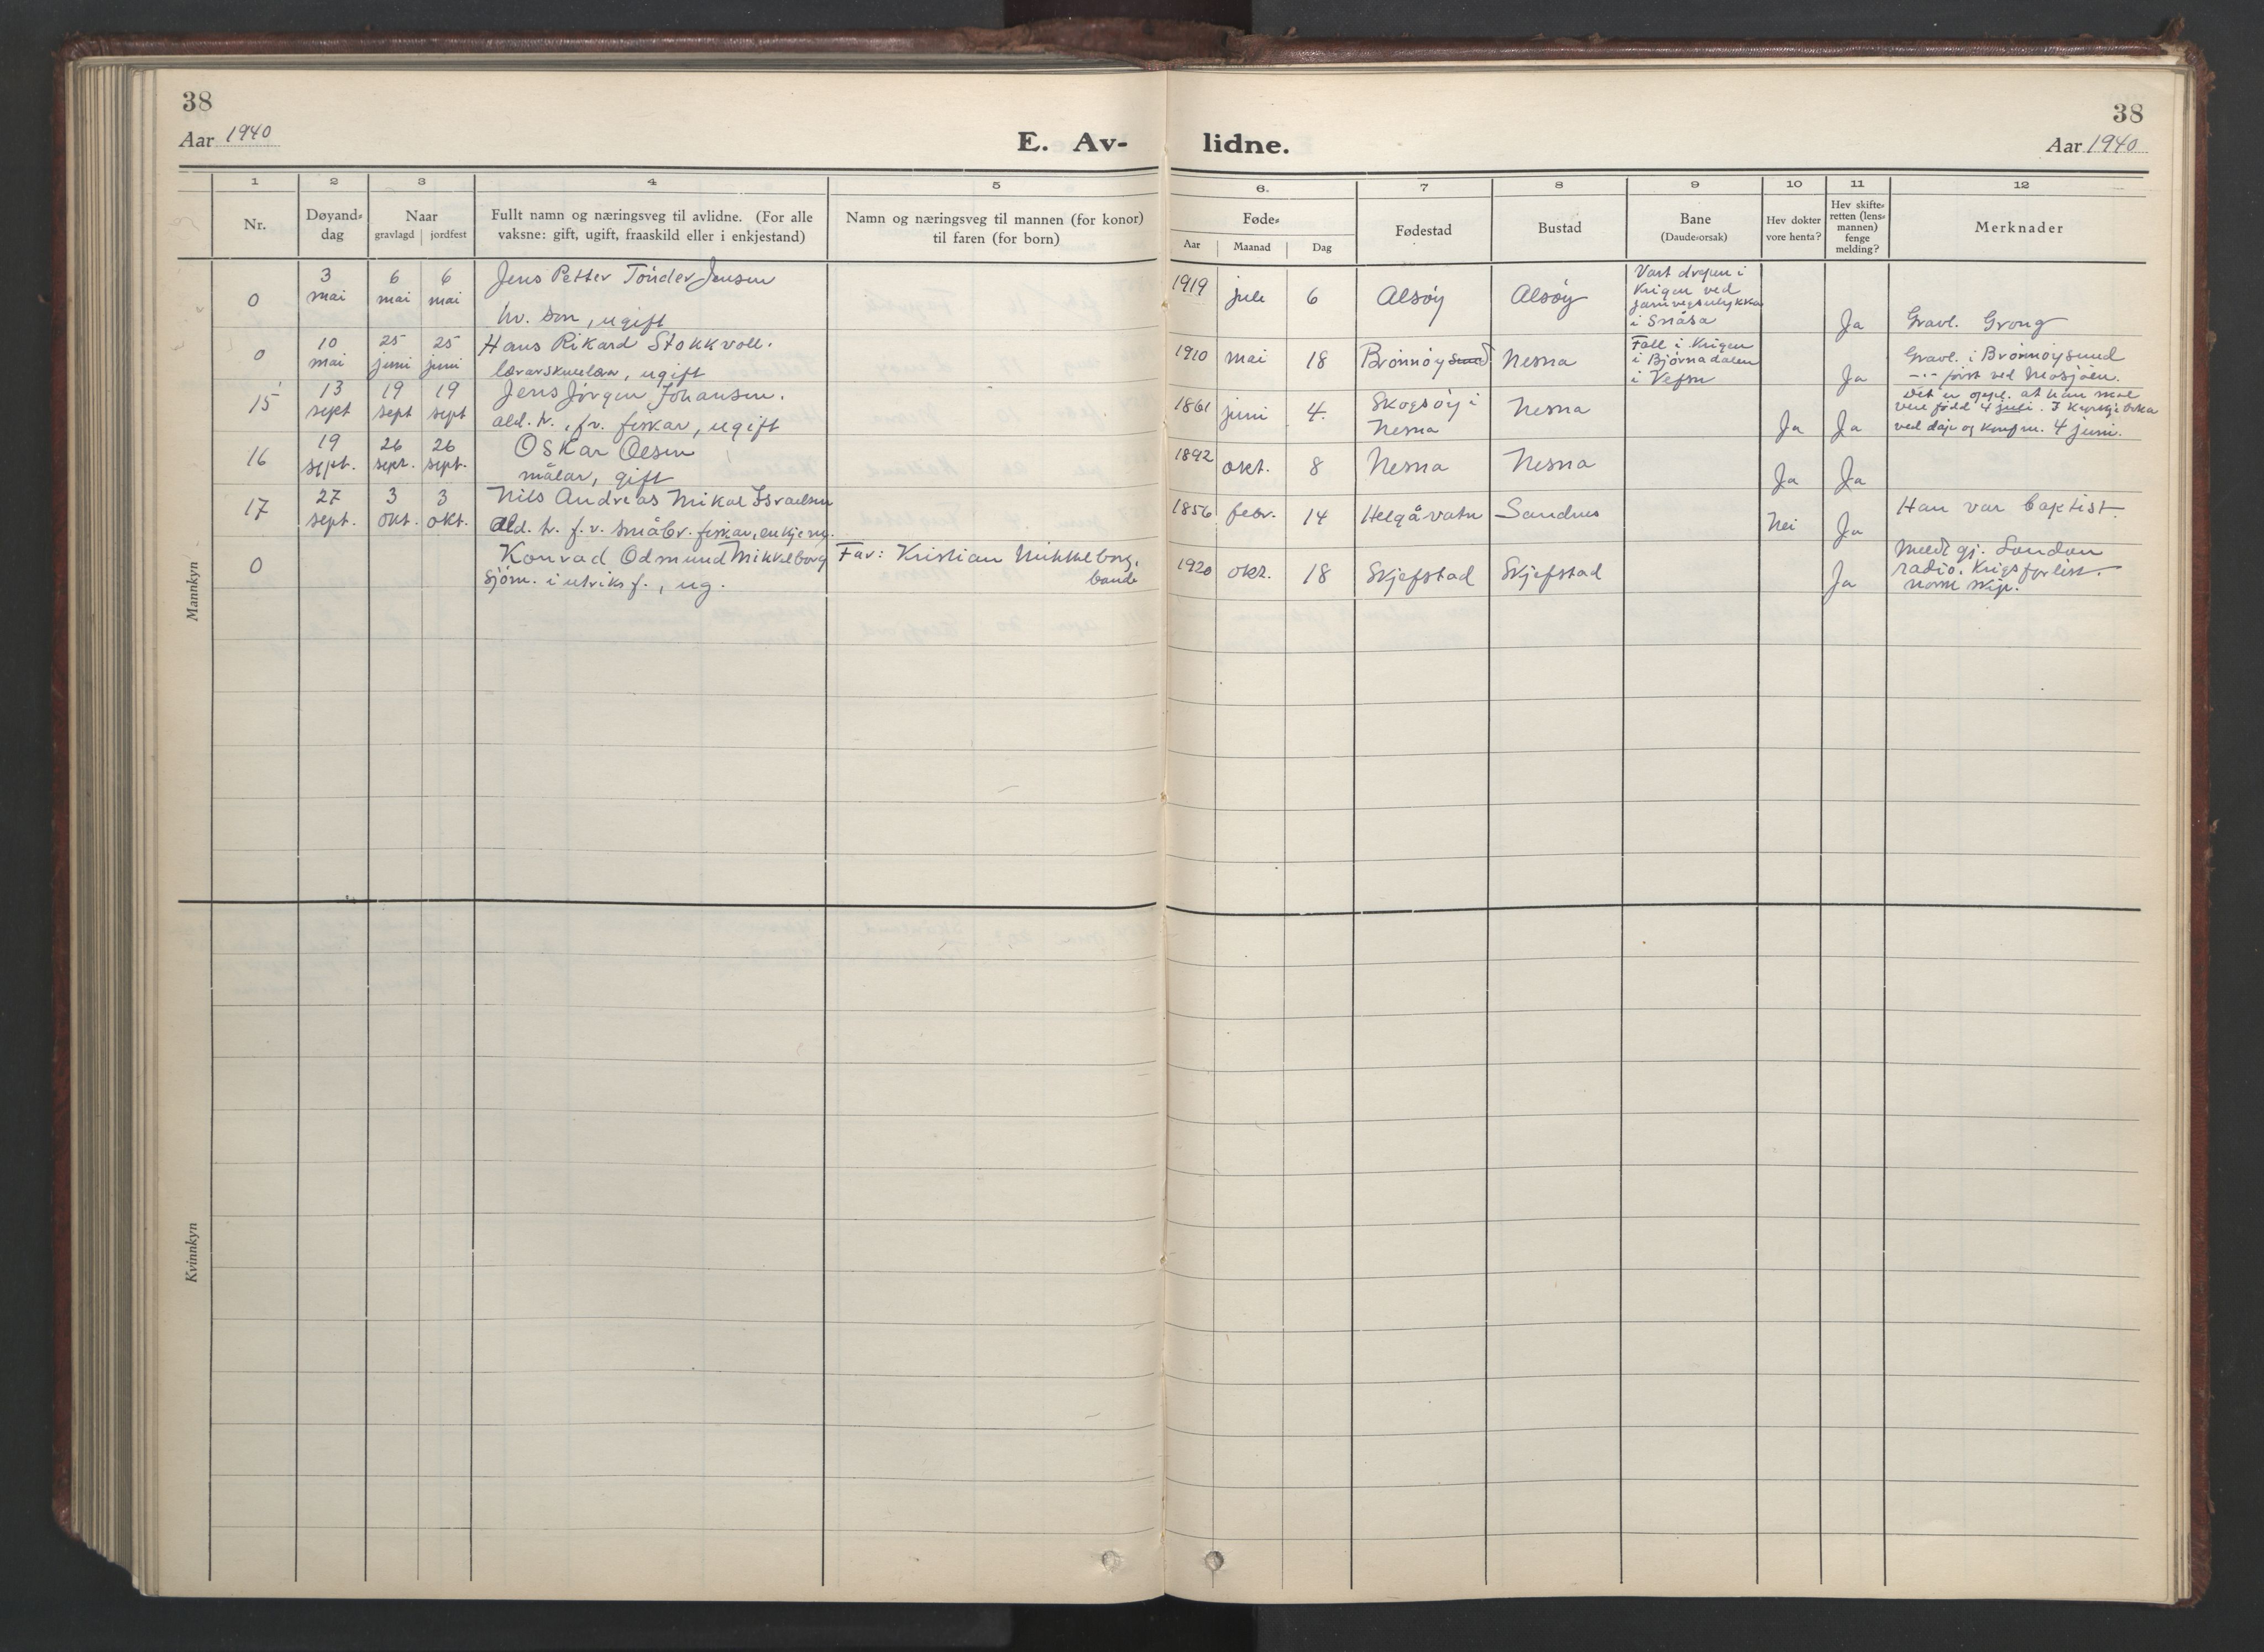 38
Aar 1940
E. Av-
lidne.
38
Aar 1940
1 2 3 4 5 6. 7 8 9 10 11 12
Nr.
Døyand-
dag
Naar
gravlagd jordfest
Fullt namn og næringsveg til avlidne. (For alle
vaksne: gift, ugift, fraaskild eller i enkjestand)
Namn og næringsveg til mannen (for konor)
til faren (for born)
Føde-
Aar Maanad Dag
Fødestad
Bustad
Bane
(Daude-orsak)
Hev dokter
vore henta?
Hev skifte-
retten (lens-
mannen)
fenge
melding?
Merknader
Mannkyn
0
3
mai
6
mai
6
mai
Jens Petter Tönder Jensen
hv. son, ugift
1919 juli 6
Alsöy
Alsöy
Vart drepen i
krigen ved
jarnvegsulykka
i Snåsa
Ja
Gravl. Grong
0
10
mai
25
juni
25
juni
Hans Rikard Stokkvoll.
lærarskuelærar, ugift
1910 mai 18
Brönnöysund
Nesna
Fall i krigen
i Bjørnadalen
i Vefsn
Ja
Gravl. i Brönnöysund
-"- först ved Mosjöen.
15
13
sept
19
sept
19
sept
Jens Jörgen Johansen.
ald. tr., fv. fiskar, ugift
1861 juni 4.
Skogsöy i
Nesna
Nesna
Ja
Ja
Det er oppl. at han skal
vere född 4 juli. I kyrkjeboka
ved dåp og konfm. 4 juni.
16
19
sept.
26
sept.
26
sept.
Oskar Olsen
målar, gift
1892 okt. 8
Nesna
Nesna
Ja
Ja
17
27
sept.
3
okt.
3
okt.
Nils Andreas Mikal Israelsen
ald. tr. f. v. småbr. fiskar, enkjem.
1856 febr. 14
Helgåvatn
Sandnes
Nei
Ja
Han var baptist.
0
Konrad Odmund Mikkelborg
sjöm. i utriksf., ug.
Far: Kristian Mikkelborg,
bonde
1920 okt. 18
Skjefstad
Skjefstad
Ja
Meldt gj. London
radio. Krigsforlist
norsk skip.
Kvinnkyn